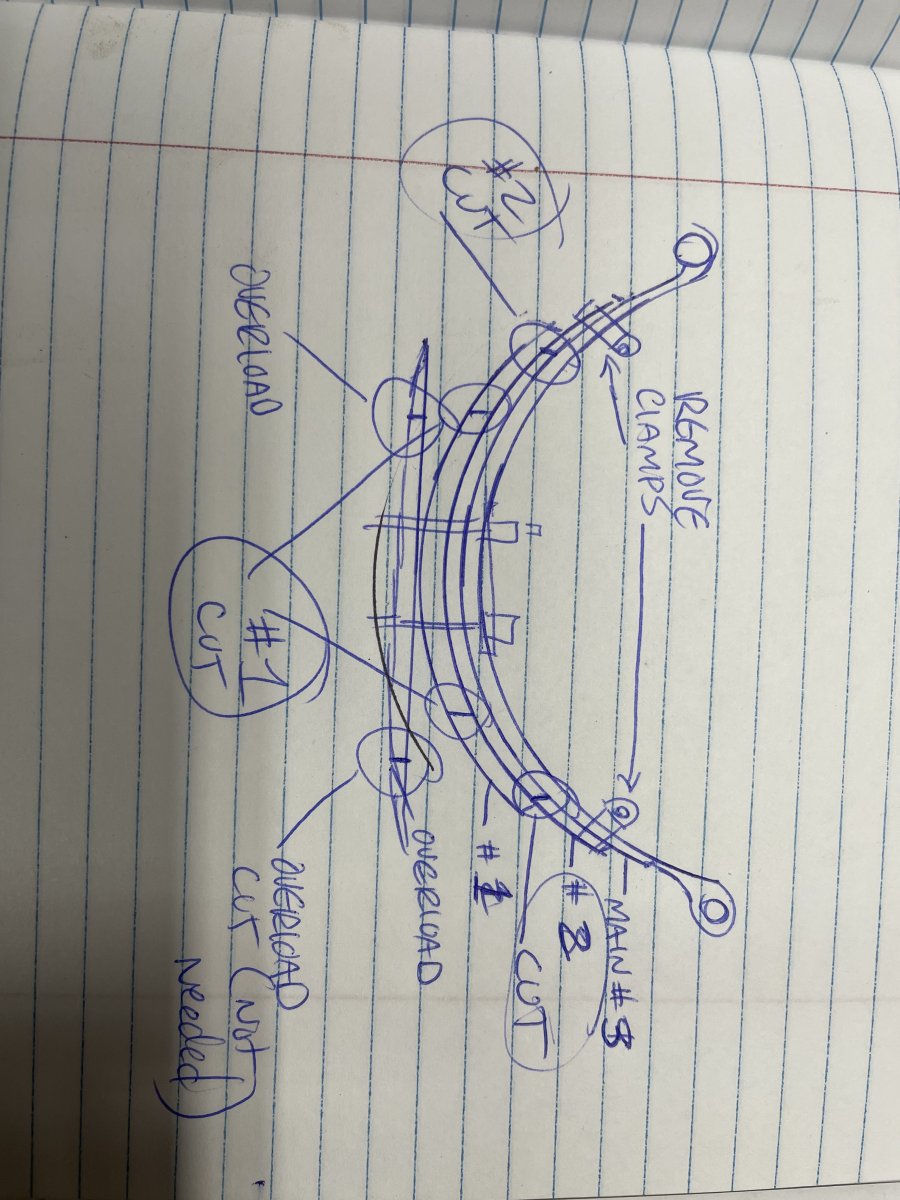 REMOVE
CLAMPS
MAIN #3
#2
CUT
#2
CUT
#1
OVERLOAD
OVERLOAD
#1
CUT
OVERLOAD
CUT (Not
Needed)